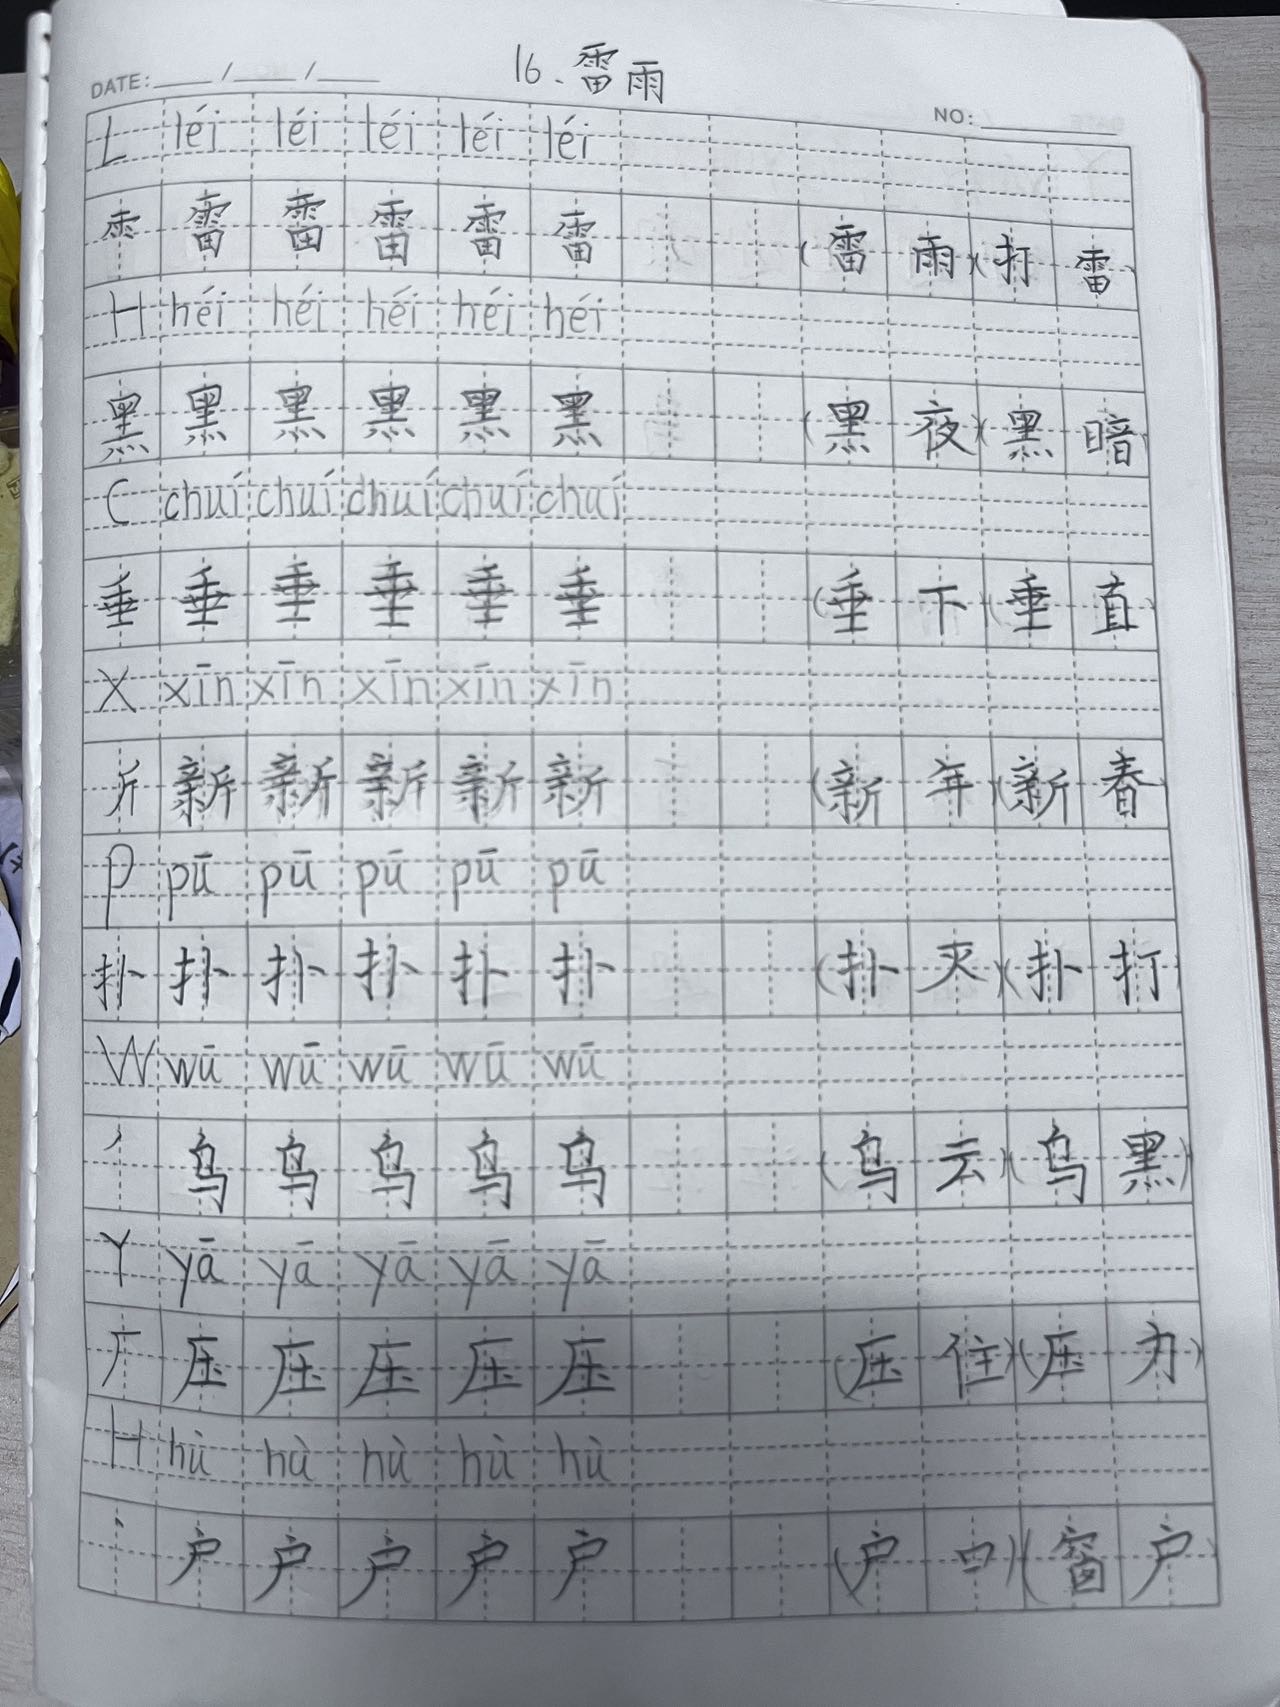 16、雷雨
DATE: ____ / ____ / ____
NO: ________
L léi léi léi léi léi
⻗ 雷 雷 雷 雷 雷 (雷雨)(打雷)
H héi héi héi héi héi
黑 黑 黑 黑 黑 黑 (黑夜)(黑暗)
C chuí chuí chuí chuí chuí
垂 垂 垂 垂 垂 垂 (垂下)(垂直)
X xīn xīn xīn xīn xīn
斤 新 新 新 新 新 (新年)(新春)
P pū pū pū pū pū
扑 扑 扑 扑 扑 扑 (扑灭)(扑打)
W wū wū wū wū wū
丿 乌 乌 乌 乌 乌 (乌云)(乌黑)
Y yā yā yā yā yā
厂 压 压 压 压 压 (压住)(压力)
H hù hù hù hù hù
丶 户 户 户 户 户 (户口)(窗户)